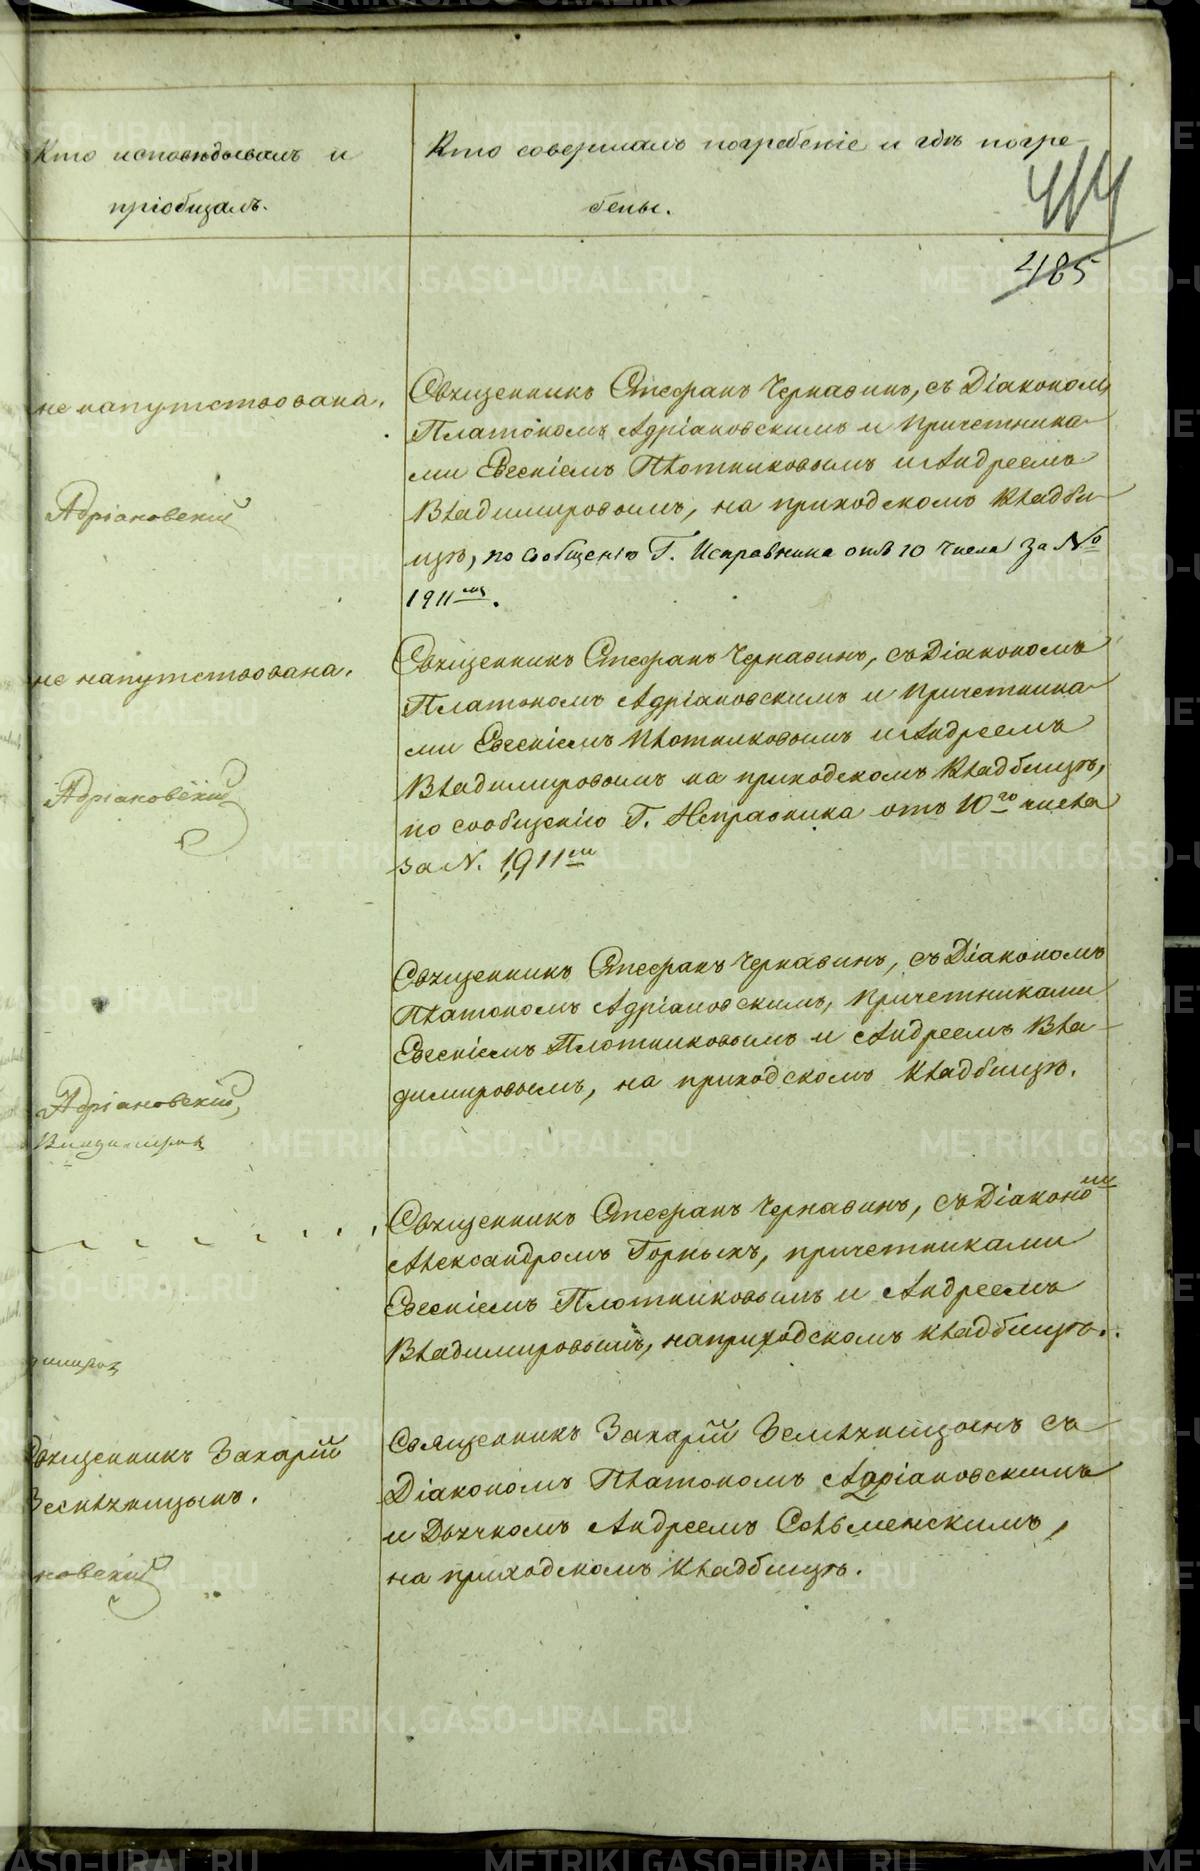 Кто исповѣдывалъ и
пріобщалъ.
Кто совершалъ погребеніе и гдѣ погре-
бены.
414
485
не напутствована.
Адріановскій
Священникъ Стефанъ Чернавинъ, съ Діакономъ
Платономъ Адріановскимъ и причетника-
ми Евгеніемъ Плотниковымъ и Андреемъ
Владимировымъ, на приходскомъ кладби-
щѣ, по сообщенію Г. Исправника отъ 10 числа за №
1911мъ.
не напутствована.
Адріановскій
Священникъ Стефанъ Чернавинъ, съ Діакономъ
Платономъ Адріановскимъ и причетника-
ми Евгеніемъ Плотниковымъ и Андреемъ
Владимировымъ на приходскомъ кладбищѣ,
по сообщенію Г. Исправника отъ 10го числа
за N. 1,911мъ
Адріановскій,
Владимировъ
Священникъ Стефанъ Чернавинъ, съ Діакономъ
Платономъ Адріановскимъ, причетниками
Евгеніемъ Плотниковымъ и Андреемъ Вла-
димировымъ, на приходскомъ кладбищѣ.
димировъ
Священникъ Стефанъ Чернавинъ, съ Діакономъ
Александромъ Горныхъ, причетниками
Евгеніемъ Плотниковымъ и Андреемъ
Владимировымъ, на приходскомъ кладбищѣ.
Священникъ Захарій
новскій
Священникъ Захарій съ
Діакономъ Платономъ Адріановскимъ
и Дьячкомъ Андреемъ
на приходскомъ кладбищѣ.
METRIKI.GASO-URAL.RU